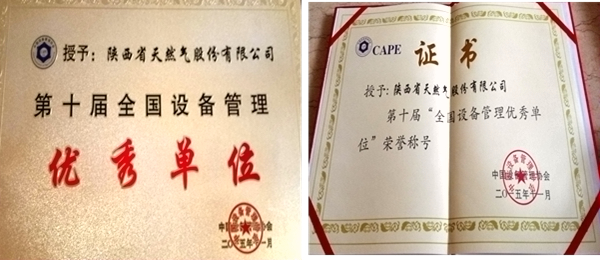 授予：陕西省天然气股份有限公司
第十届全国设备管理
优秀单位
中国设备管理协会
二〇一五年十一月
CAPE 证书
授予：陕西省天然气股份有限公司
第十届“全国设备管理优秀单
位”荣誉称号
中国设备管理协会
二〇一五年十一月